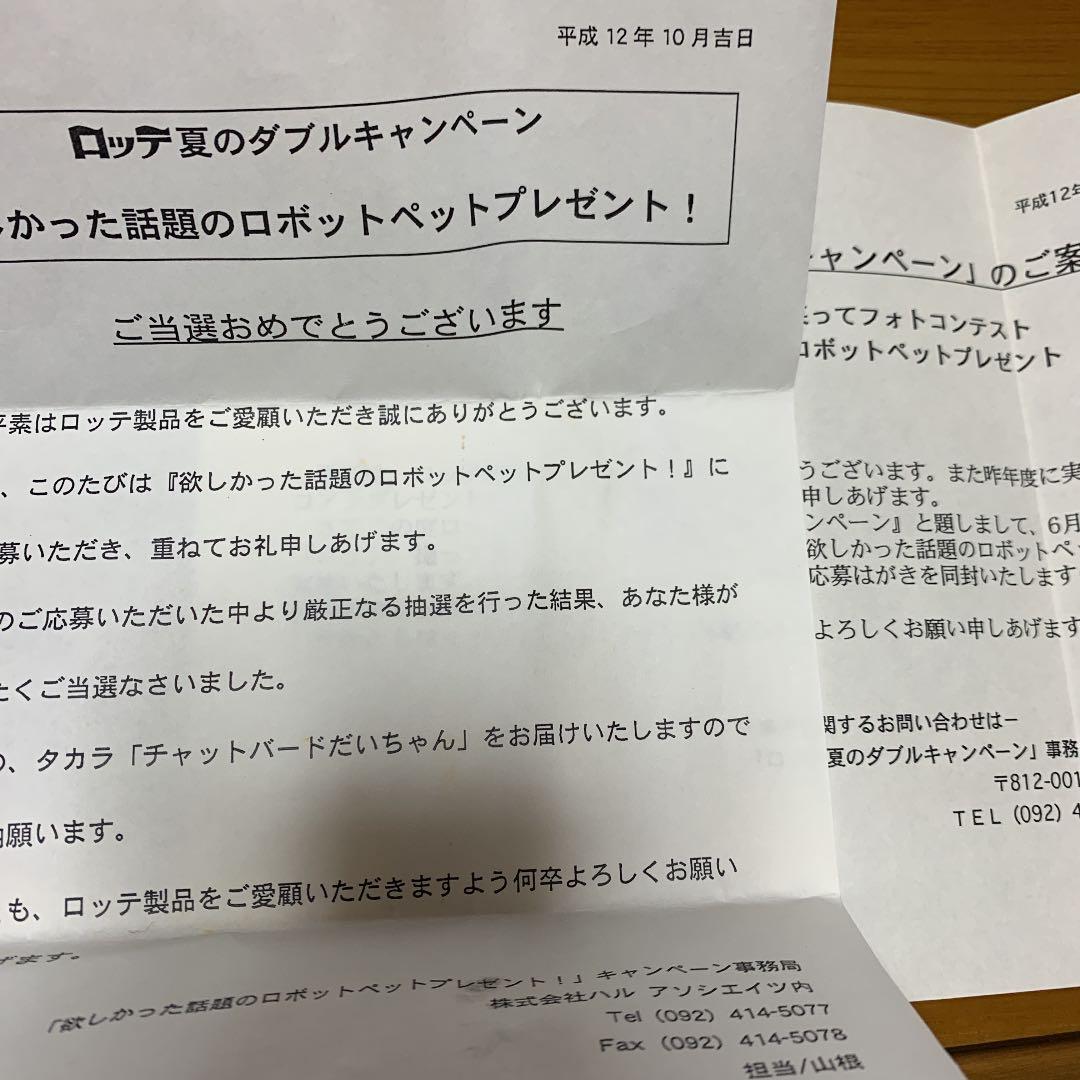 平成12年10月吉日
ロッテ夏のダブルキャンペーン
しかった話題のロボットペットプレゼント！
ご当選おめでとうございます
平素はロッテ製品をご愛顧いただき誠にありがとうございます。
、このたびは『欲しかった話題のロボットペットプレゼント！』に
募いただき、重ねてお礼申しあげます。
のご応募いただいた中より厳正なる抽選を行った結果、あなた様が
たくご当選なさいました。
の、タカラ「チャットバードだいちゃん」をお届けいたしますので
納願います。
も、ロッテ製品をご愛顧いただきますよう何卒よろしくお願い
げます。
「欲しかった話題のロボットペットプレゼント！」キャンペーン事務局
株式会社ハル アソシエイツ内
Tel (092) 414-5077
Fax (092) 414-5078
担当/山根
平成12年
キャンペーン」のご案
ってフォトコンテスト
ロボットペットプレゼント
うございます。また昨年度に実
申しあげます。
ンペーン』と題しまして、6月
欲しかった話題のロボットペッ
応募はがきを同封いたします
よろしくお願い申しあげます
関するお問い合わせは−
夏のダブルキャンペーン」事務
〒812-001
TEL (092) 4